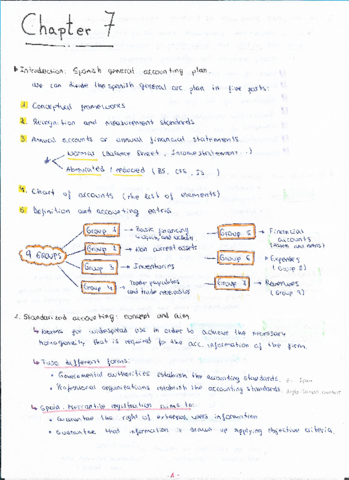 Chapter 7
Introduction: Spanish general accounting plan.
We can divide the spanish general acc plan in five parts:
1. Conceptual frameworks
2. Recognition and measurement standards
3. Annual accounts or annual financial statements.
Normal (Balance Sheet, Income statement ..)
Abreviated / reduced (BS, CFS, IS..)
4. Chart of accounts (the list of elements)
5. Definition and accounting entries
9 GROUPS
Group 1 → Basic financing
Group 2 → Non current assets
Group 3 → Inventories
Group 4 → Trade payables and trade receivables
Group 5 → Financial accounts
Group 6 → Expenses (Group 8)
Group 7 → Revenues (Group 9)
Standardized accounting: concept and aim
means for widespread use in order to achieve the necessary
homogeneity that is required to the acc. information of the firm.
Two different forms:
• Governmental authorities establish the accounting standards.
• Professional organizations establish the accounting standards
mercantile registration aims to:
• Guarantee the right of external users information
• Guarantee that information is drawn up applying objective criteria.